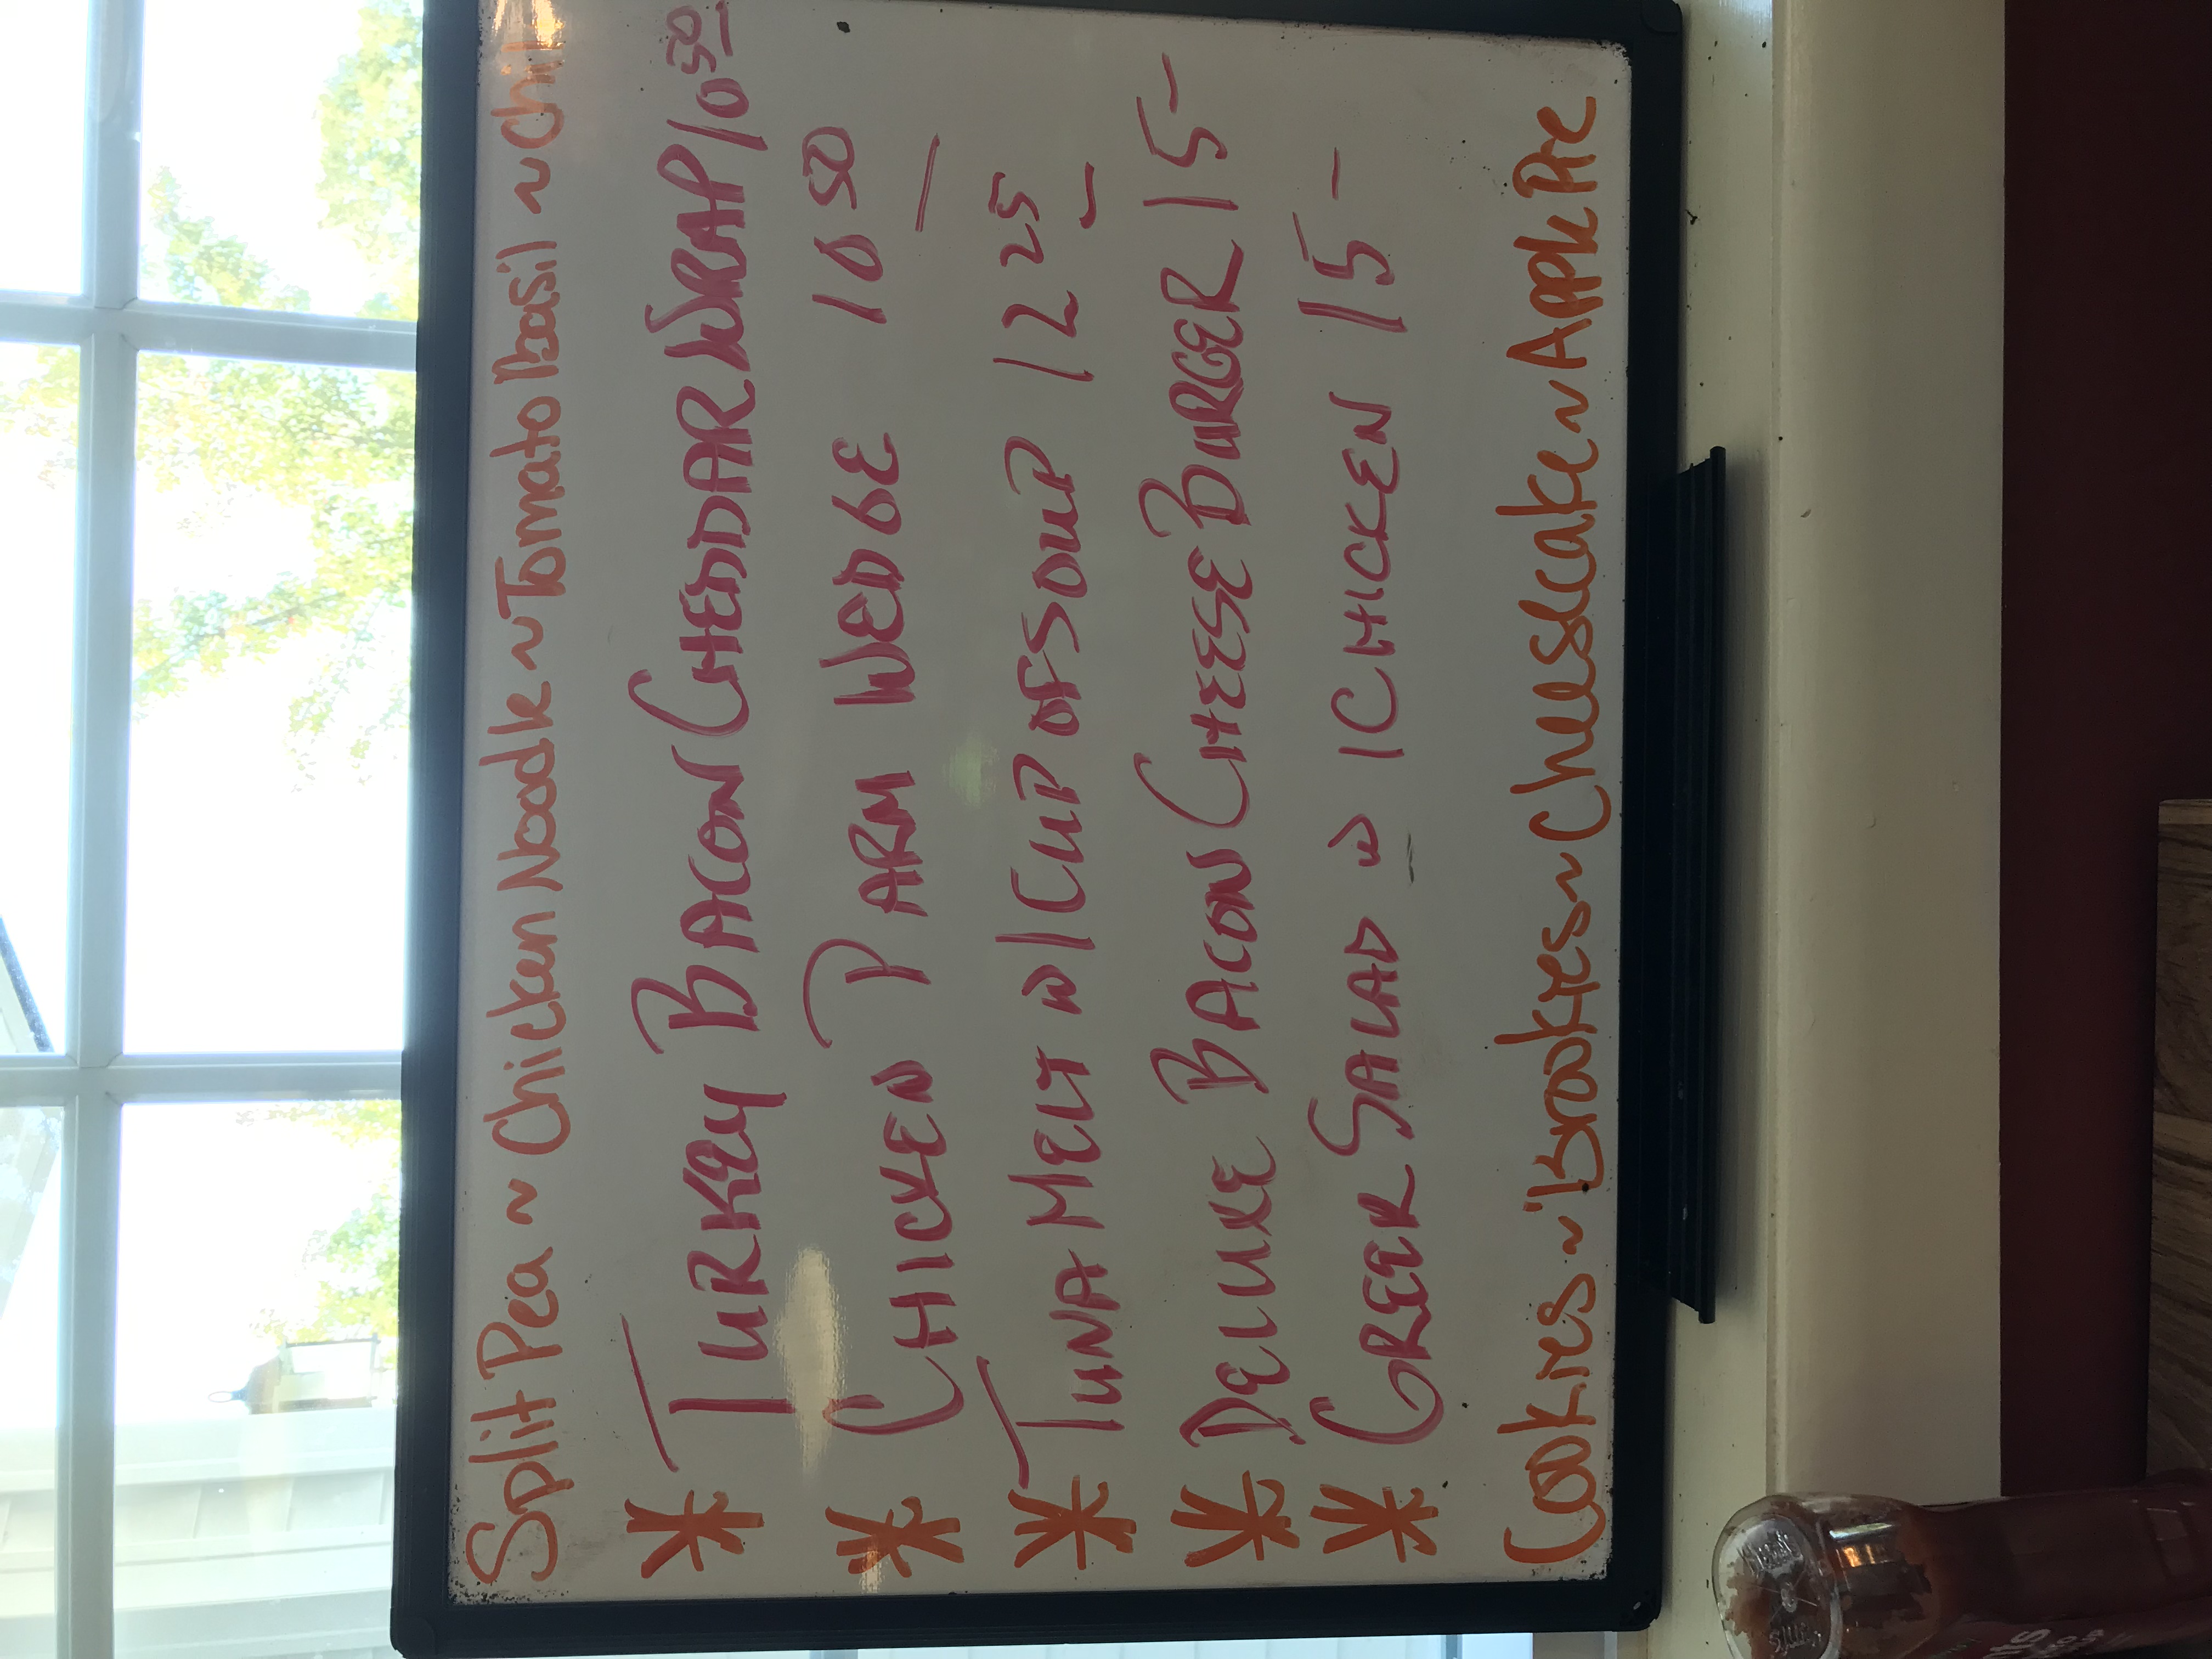 Split Pea ~ Chicken Noodle ~ Tomato Basil ~ Chil
* TURKEY BACON CHEDDAR WRAP 10 50
* CHICKEN PARM WEDGE 10 50
* TUNA MELT w/ CUP OF SOUP 12 25
* DELUXE BACON CHEESE BURGER 15-
* GREEK SALAD w/ CHICKEN 15-
Cookies ~ Brookies ~ Cheesecake ~ Apple Pie